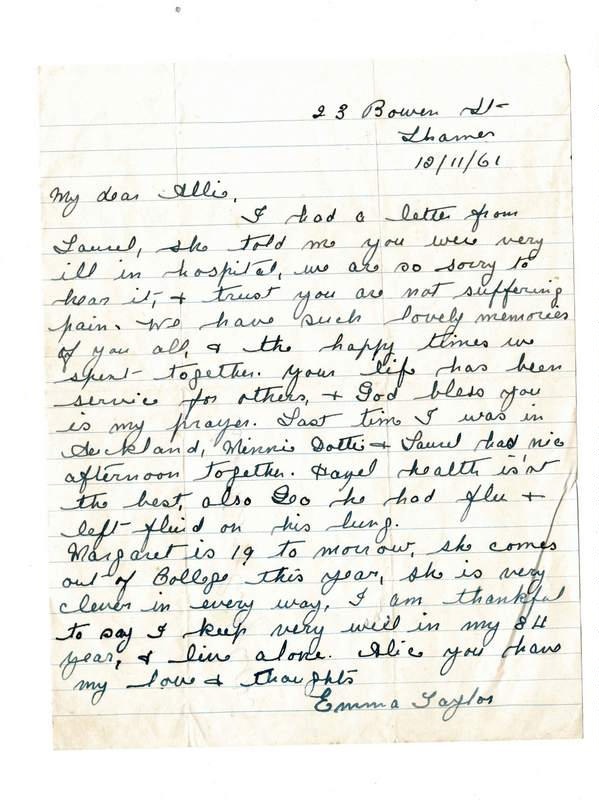 23 Bowen St
Thames
12/11/61
My dear Allie,
I had a letter from
Laurel, she told me you were very
ill in hospital, we are so sorry to
hear it, & trust you are not suffering
pain. We have such lovely memories
of you all, & the happy times we
spent together. Your life has been
service for others, & God bless you
is my prayer. Last time I was in
Auckland, Minnie Dottie & Laurel had nice
afternoon together. Hazel health is'nt
the best, also Geo he had flu &
left fluid on his lung.
Margaret is 19 to morrow, she comes
out of College this year, she is very
clever in every way, I am thankful
to say I keep very well in my 84
year, & live alone. Alie you have
my love & thoughts
Emma Taylor